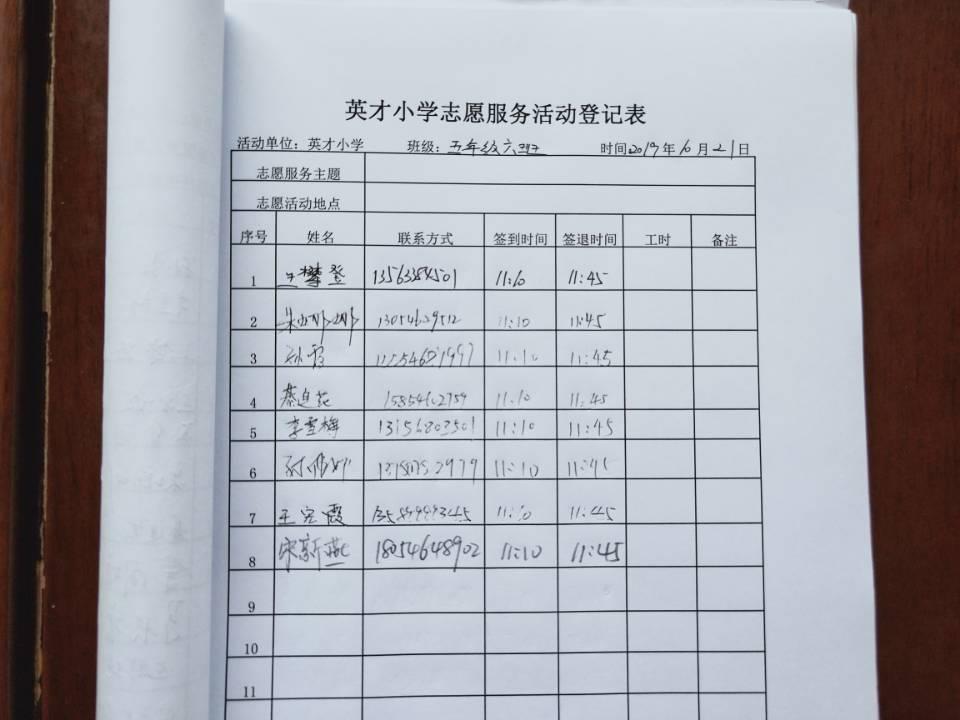 英才小学志愿服务活动登记表
活动单位：英才小学 班级：五年级六班 时间2019年6月21日
志愿服务主题
志愿活动地点
序号 姓名 联系方式 签到时间 签退时间 工时 备注
1 王攀登 11:10 11:45
2 13054629512 11:10 11:45
3 孙霞 11:10 11:45
4 11:10 11:45
5 李雪梅 13156803501 11:10 11:45
6 11:10 11:45
7 王宝霞 11:10 11:45
8 宋新燕 18054648902 11:10 11:45
9
10
11